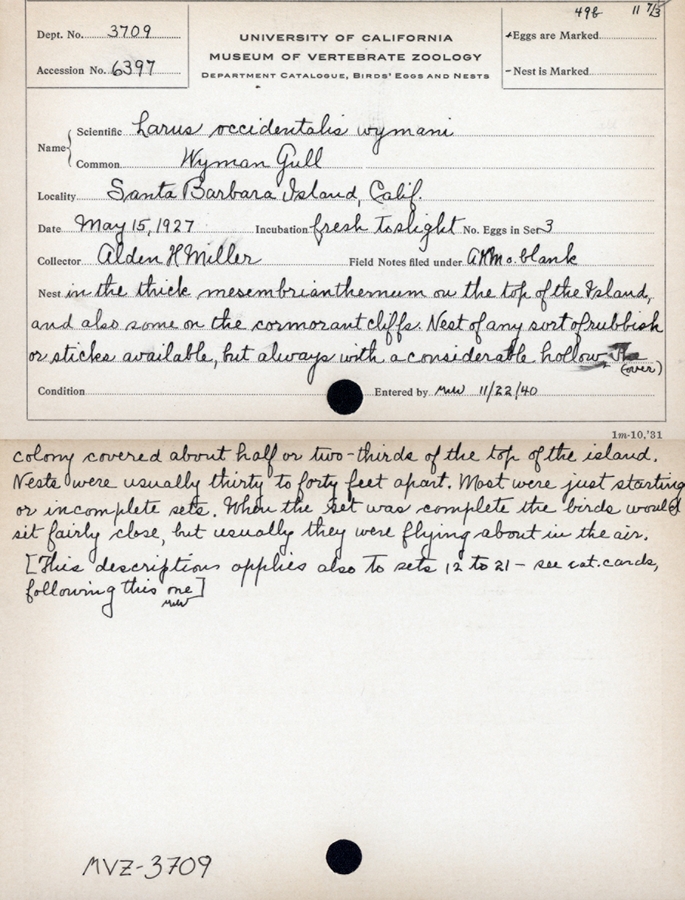 49b 11 7/3
Dept. No. 3709
UNIVERSITY OF CALIFORNIA
MUSEUM OF VERTEBRATE ZOOLOGY
DEPARTMENT CATALOGUE, BIRDS' EGGS AND NESTS
Eggs are Marked
Accession No. 6397
Nest is Marked
Name
Scientific Larus occidentalis wymani
Common Wyman Gull
Locality Santa Barbara Island, Calif.
Date May 15, 1927 Incubation fresh to slight No. Eggs in Set 3
Collector Alden H Miller Field Notes filed under blank
Nest in the thick mesembrianthemum on the top of the Island,
and also some on the cormorant cliffs. Nest of any sort of rubbish
or sticks available, but always with a considerable hollow
(over)
Condition Entered by MW 11/22/40
1m-10,'31
colony covered about half or two-thirds of the top of the island.
Nests were usually thirty to forty feet apart. Most were just starting
or incomplete sets. When the set was complete the birds would
sit fairly close, but usually they were flying about in the air.
[This description applies also to sets 12 to 21 - see cat. cards,
following this one]
MVZ-3709